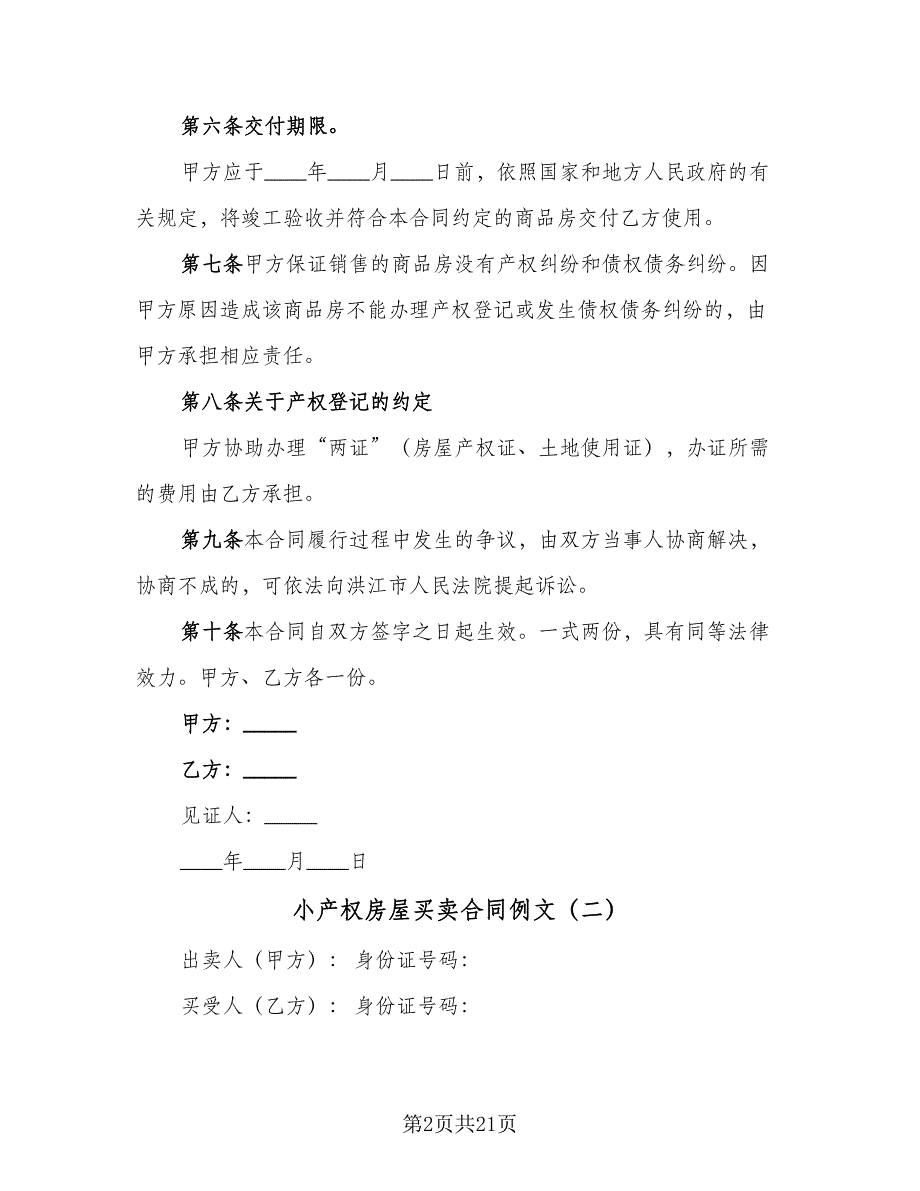 第六条交付期限。
甲方应于____年____月____日前，依照国家和地方人民政府的有
关规定，将竣工验收并符合本合同约定的商品房交付乙方使用。
第七条甲方保证销售的商品房没有产权纠纷和债权债务纠纷。因
甲方原因造成该商品房不能办理产权登记或发生债权债务纠纷的，由
甲方承担相应责任。
第八条关于产权登记的约定
甲方协助办理“两证”（房屋产权证、土地使用证），办证所需
的费用由乙方承担。
第九条本合同履行过程中发生的争议，由双方当事人协商解决，
协商不成的，可依法向洪江市人民法院提起诉讼。
第十条本合同自双方签字之日起生效。一式两份，具有同等法律
效力。甲方、乙方各一份。
甲方：_____
乙方：_____
见证人：_____
____年____月____日
小产权房屋买卖合同例文（二）
出卖人（甲方）： 身份证号码：
买受人（乙方）： 身份证号码：
第2页共21页